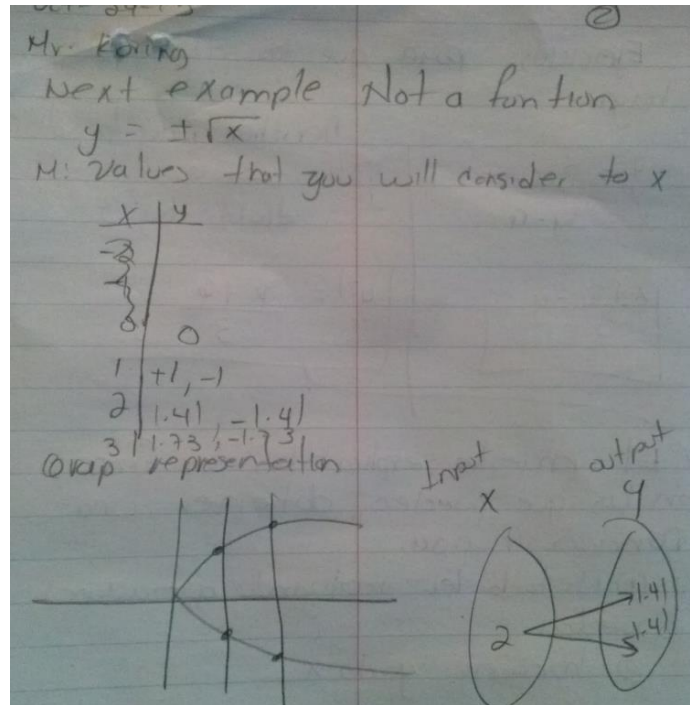 ②
Mr.
Next example Not a funtion
y = ±√x
M: values that you will consider to x
x | y
0
1 | +1, -1
2 | 1.41, -1.41
3 | 1.73, -1.73
representation
Input output
x y
2
1.41
-1.41